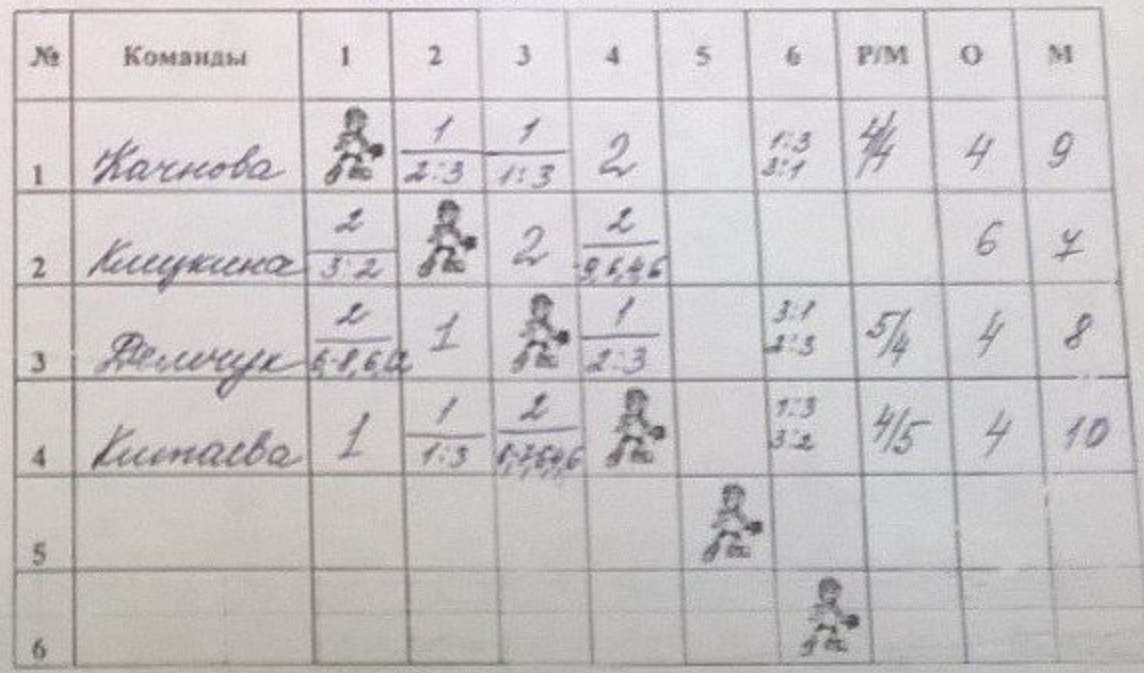 № Команды 1 2 3 4 5 6 Р/М О М
1 Качнова 1/2:3 1/1:3 2 1:3 3:1 4/4 4 9
2 Клицкина 2/3:2 2 2/9,6,4,6 6 7
3 2/6,-8,6,9 1 1/2:3 3:1 2:3 5/4 4 8
4 Китаева 1 1/1:3 2 1:3 3:2 4/5 4 10
5
6